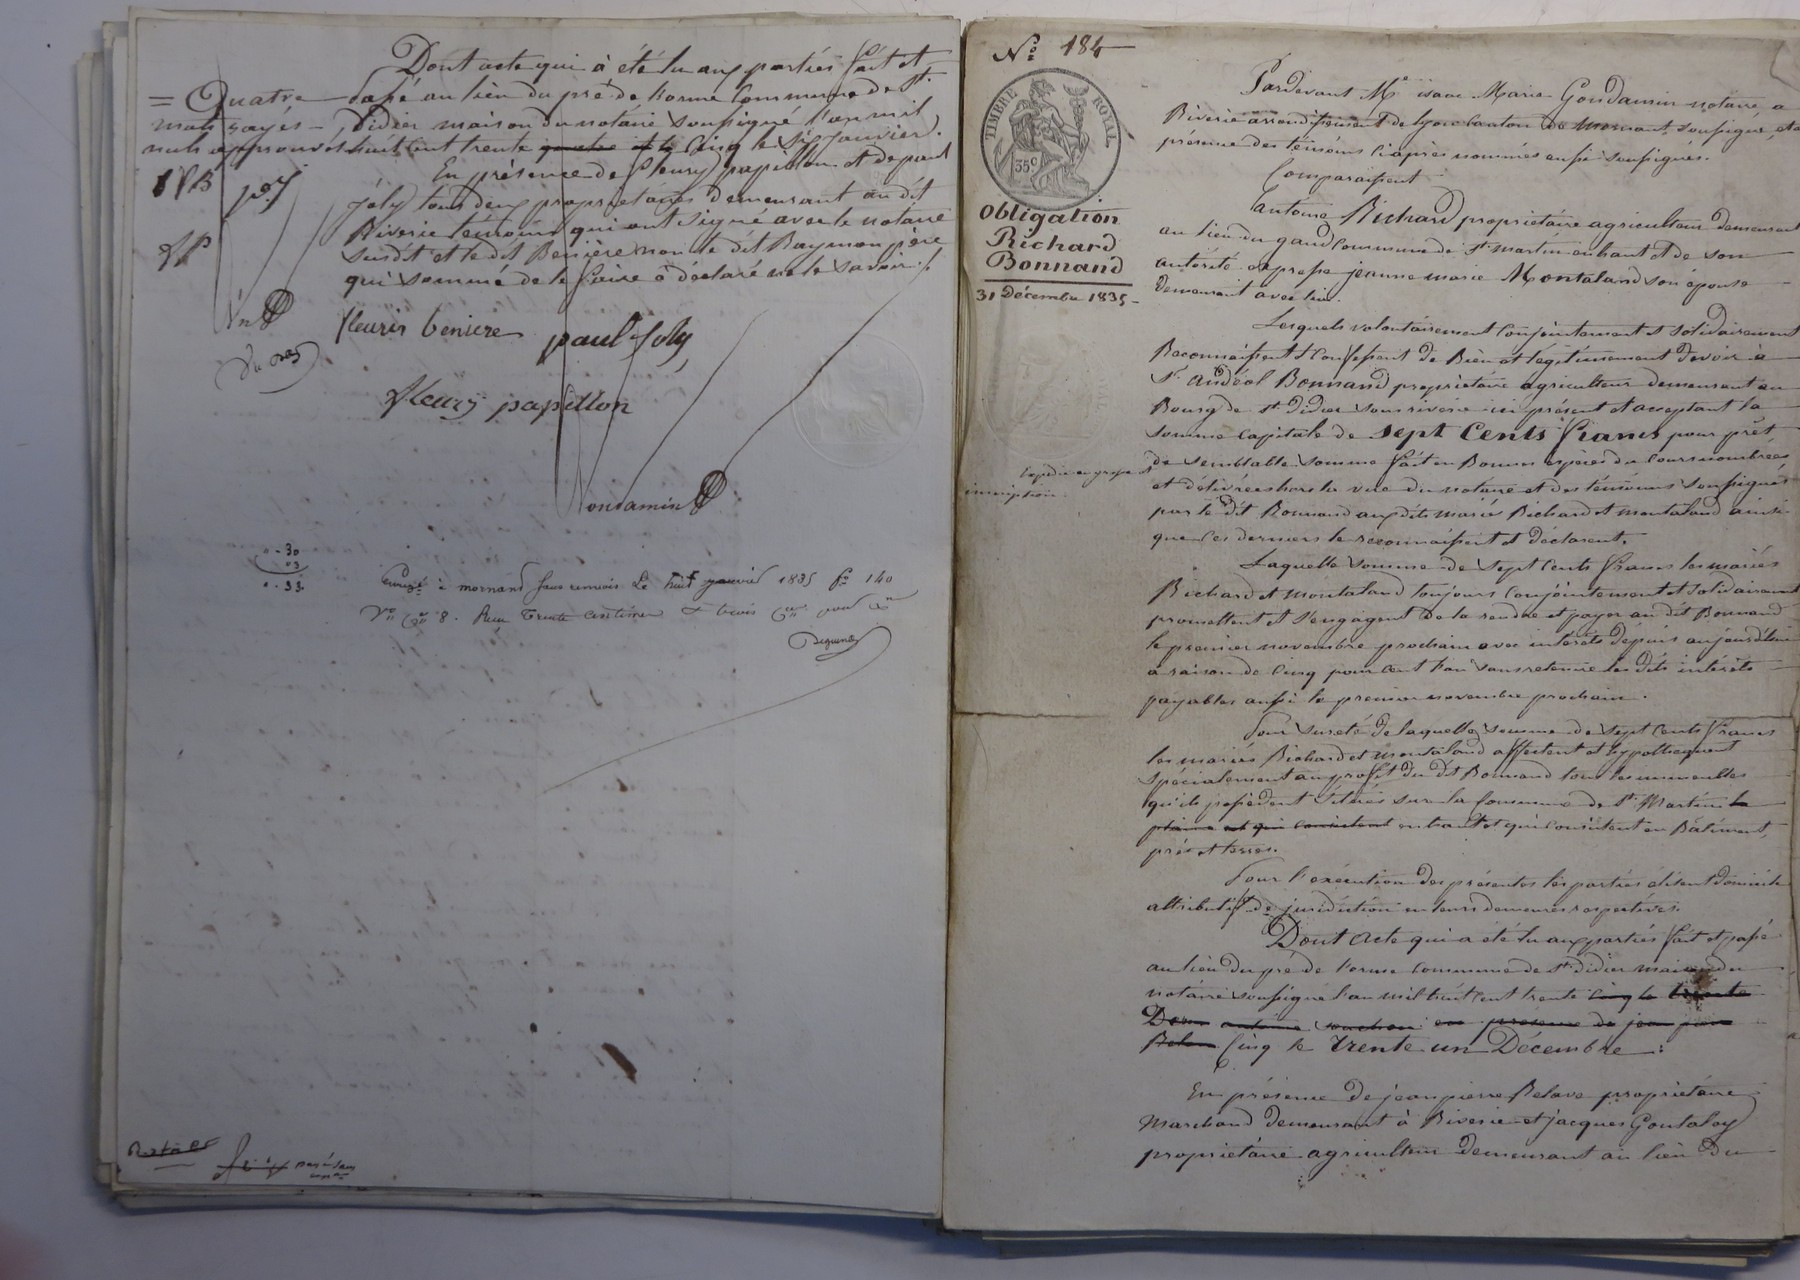 Dont acte qui à été lu aux parties fait et
= Quatre passé au lieu du pré de l'orme commune de St.
mots rayés Didier maison du notaire soussigné l'an mil
nuls approuvés huit cent trente quatre et le cinq le six janvier.
En présence de fleury papillon et de paul
joly tous deux propriétaires demeurant au dit
Riverie témoins qui ont signé avec le notaire
susdit et le dit Benière non le dit Raymon père
qui sommé de le faire à déclaré ne le savoir
fleuris beniere paul joly
fleury papillon
Gondamin
0 - 30
03
0 - 33
Enregé à mornant sans renvois le huit janvier 1835 fo 140
Vo Ce 8. Reçu trente centimes & trois
No 184
TIMBRE ROYAL
35c
Obligation
Richard
Bonnand
31 Décembre 1835
Pardevant Me isaac Marie Gondamin notaire a
Riverie arrondissement de Lyon canton de Mornant soussigné et en
présence des témoins ciaprès nommés aussi soussignés.
Comparaissent
Antoine Richard propriétaire agriculteur demeurant
au lieu du commune de St martin en haut et de son
autorité expresse jeanne marie Montaland son épouse
demeurant avec lui.
Lesquels volontairement conjointement et solidairement
Reconnaissent et confessent de Bien et légitimement devoir à
St. andéol Bonnand propriétaire agriculteur demeurant au
Bourg de St Didier sous riverie ici présent et acceptant la
somme capitale de sept cents francs pour prêt
de semblable somme fait en Bonnes espèces du cours nombrées
et délivrées hors la vue du notaire et des témoins soussignés
par le dit Bonnand aux dits mariés Richard et montaland ainsi
que ces derniers le reconnaissent et déclarent.
Expédié en grosse et
inscription
Laquelle somme de sept cents francs les mariés
Richard et montaland toujours conjointement et solidairement
promettent et s'engagent de la rendre et payer au dit Bonnand
le premier novembre prochain avec intérêts depuis aujourd'hui
a raison de cinq pour cent l'an sans retenue les dits intérêts
payables aussi le premier novembre prochain.
Pour sureté de laquelle somme de sept cents francs
les mariés Richard et montaland affectent et hypothequent
spécialement au profit du dit Bonnand tous les immeubles
qu'ils possèdent situés sur la commune de St. Martin la
plaine et qui consistent en haut et qui consistent en Bâtiment,
prés et terres.
Pour l'exécution des présentes les parties élisent domicile
attributif de juridiction en leurs demeures respectives.
Dont Acte qui a été lu aux parties fait et passé
au lieu du pré de l'orme commune de St didier maison du
notaire soussigné l'an mil huit cent trente cinq le trente
antoine souchon en présence de jean pierre
cinq le trente un Décembre.
En présence de jean pierre Relave propriétaire
Marchand demeurant à Riverie et jacques Goutaloy
propriétaire agriculteur demeurant au lieu du